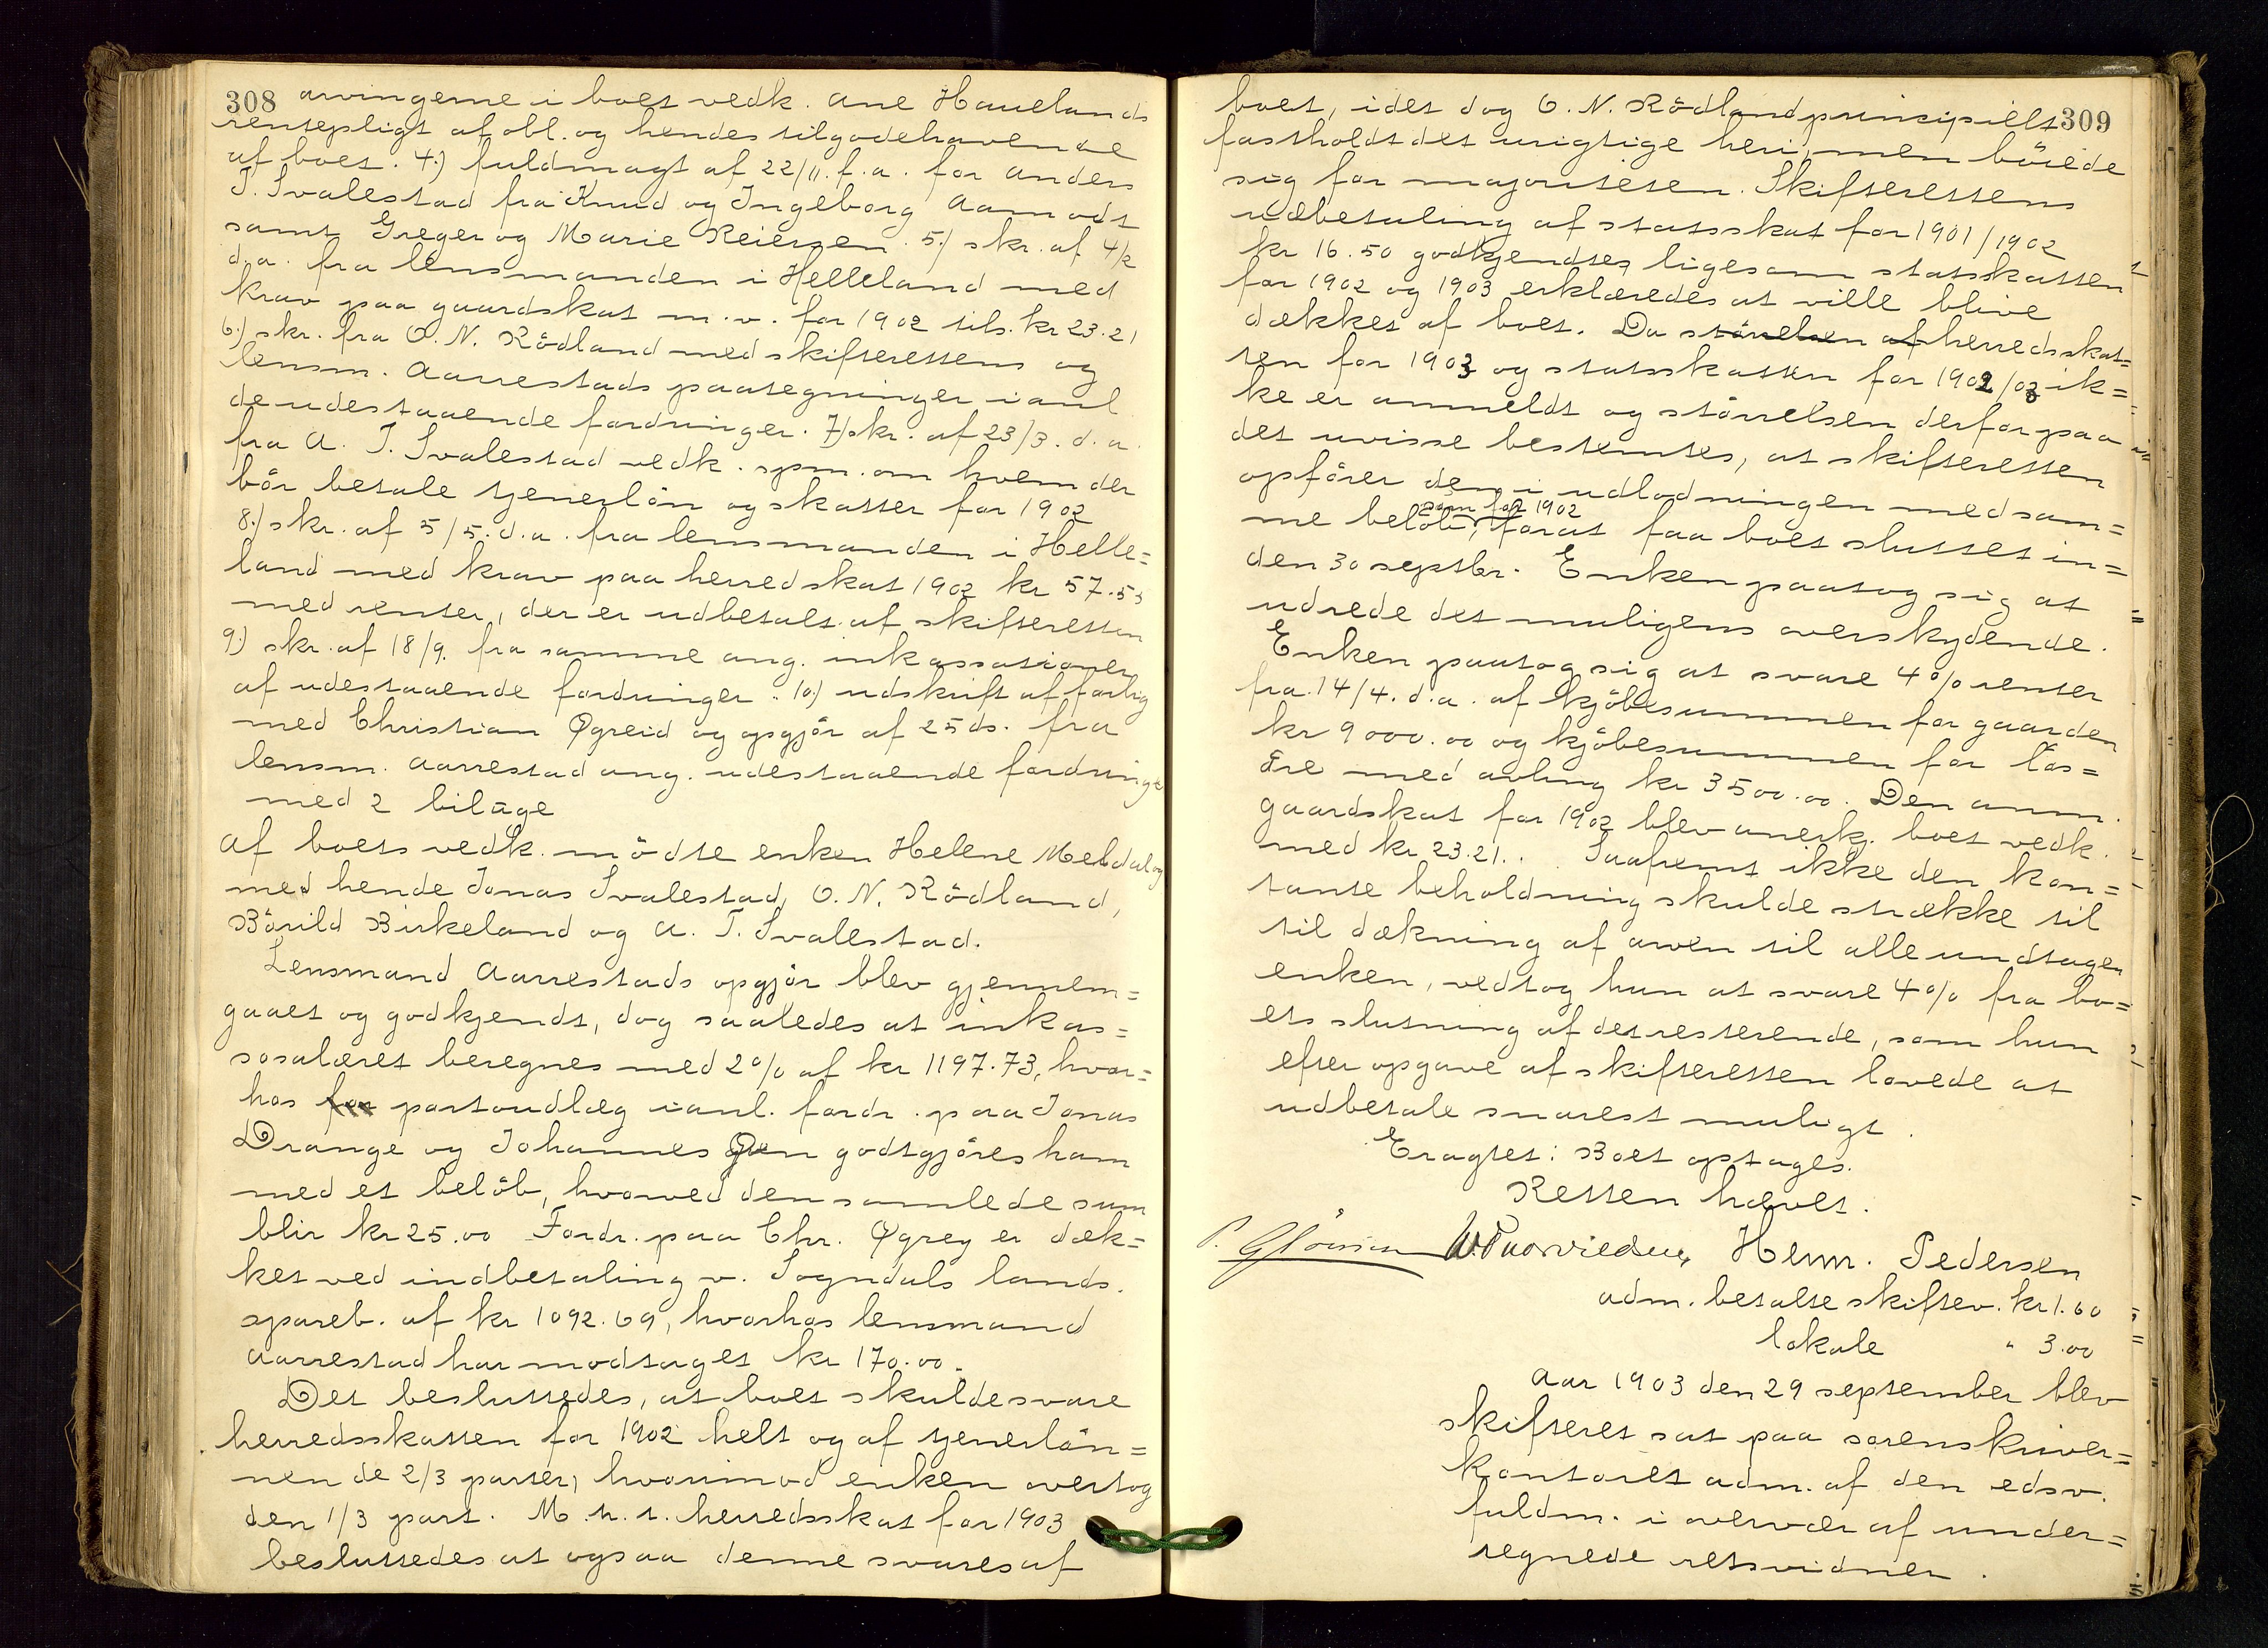 308 arvingerne i boet vedk. Ane Hauelands
rentepligt af obl. og hendes tilgodehavende
af boet. 4.) fuldmagt af 22/11. f.a. for Anders
T. Svalestad fra Knud og Ingeborg Aamodt
samt Greger og Marie Reiersen. 5.) skr. af 4/2
d.a. fra lensmanden i Helleland med
krav paa gaardskat m.v. for 1902 tils. kr 23.21
6.) skr. fra O. N. Rödland med skifterettens og
lensm. Aarrestads paategninger i anl.
de udestaaende fordringer. 7) skr. af 23/3. d.a.
fra A. T. Svalestad vedk. spm. om hvem der
bör betale tjenerlön og skatter for 1902
8.) skr. af 5/5. d.a. fra lensmanden i Helle=
land med krav paa herredskat 1902 kr 57.55
med renter, der er udbetalt af skifteretten
9.) skr. af 18/9. fra samme ang. inkassationer
af udestaaende fordringer. 10.) udskrift af forlig
med Christian Øgreid og opgjör af 25 ds. fra
lensm. Aarrestad ang. udestaaende fordringer
med 2 bilage
Af boets vedk. mödte enken Helene Meldal og
med hende Jonas Svalestad, O. N. Rödland,
Bärild Birkeland og A. T. Svalestad.
Lensmand Aarrestads opgjör blev gjennem=
gaaet og godkjendt, dog saaledes at inkas=
sosalæret beregnes med 2% af kr 1197.73, hvor=
hos for portoudlæg i anl. fordr. paa Jonas
Drange og Johannes Øen godtgjöres ham
med et belöb, hvorved den samlede sum
blir kr 25.00 Fordr. paa Chr. Øgrey er dæk=
ket ved indbetaling v. Sogndals lands.
spareb. af kr 1092.69, hvorhos lensmand
Aarrestad har modtaget kr 170.00.
Det besluttedes, at boet skulde svare
herredsskatten for 1902 helt og af tjenerlön=
nen de 2/3 parter, hvorimod enken overtog
den 1/3 part. M. h. t. herredsskat for 1903
besluttedes at ogsaa denne svares af
boet, idet dog O. N. Rödland principielt 309
fastholdt det urigtige heri, men böiede
sig for majoriteten. Skifterettens
udbetaling af statsskat for 1901/1902
kr 16.50 godkjendtes ligesom statsskatten
for 1902 og 1903 erklæredes at ville blive
dækket af boet. Da störrelsen af herredsskat=
ten for 1903 og statsskatten for 1902/03 ik=
ke er anmeldt og störrelsen derfor paa
det uvisse bestemtes, at skifteretten
opförer den i udlodningen med sam=
som for 1902
me belöb, forat faa boet sluttet in=
den 30 septbr. Enken paatog sig at
udrede det muligens overskydende.
Enken paatog sig at svare 4% renter
fra 14/4. d.a. af kjöbesummen for gaarden
kr 9000.00 og kjöbesummen for lös=
öre med avling kr 3500.00. Den anm.
gaardskat for 1902 blev anerk. boet vedk.
med kr 23.21. Saafremt ikke den kon=
tante beholdning skulde strække til
til dækning af arven til alle undtagen
enken, vedtog hun at svare 4% fra bo=
ets slutning af det resterende, som hun
efter opgave af skifteretten lovede at
udbetale snarest muligt.
Eragtet: Boet optages.
Retten hævet.
Herm. Pedersen
adm. betalte skiftev. kr 1.60
lokale " 3.00
Aar 1903 den 29 september blev
skifteret sat paa sorenskriver=
kontoret adm. af den edsv.
fuldm. i overvær af under=
tegnede retsvidner.